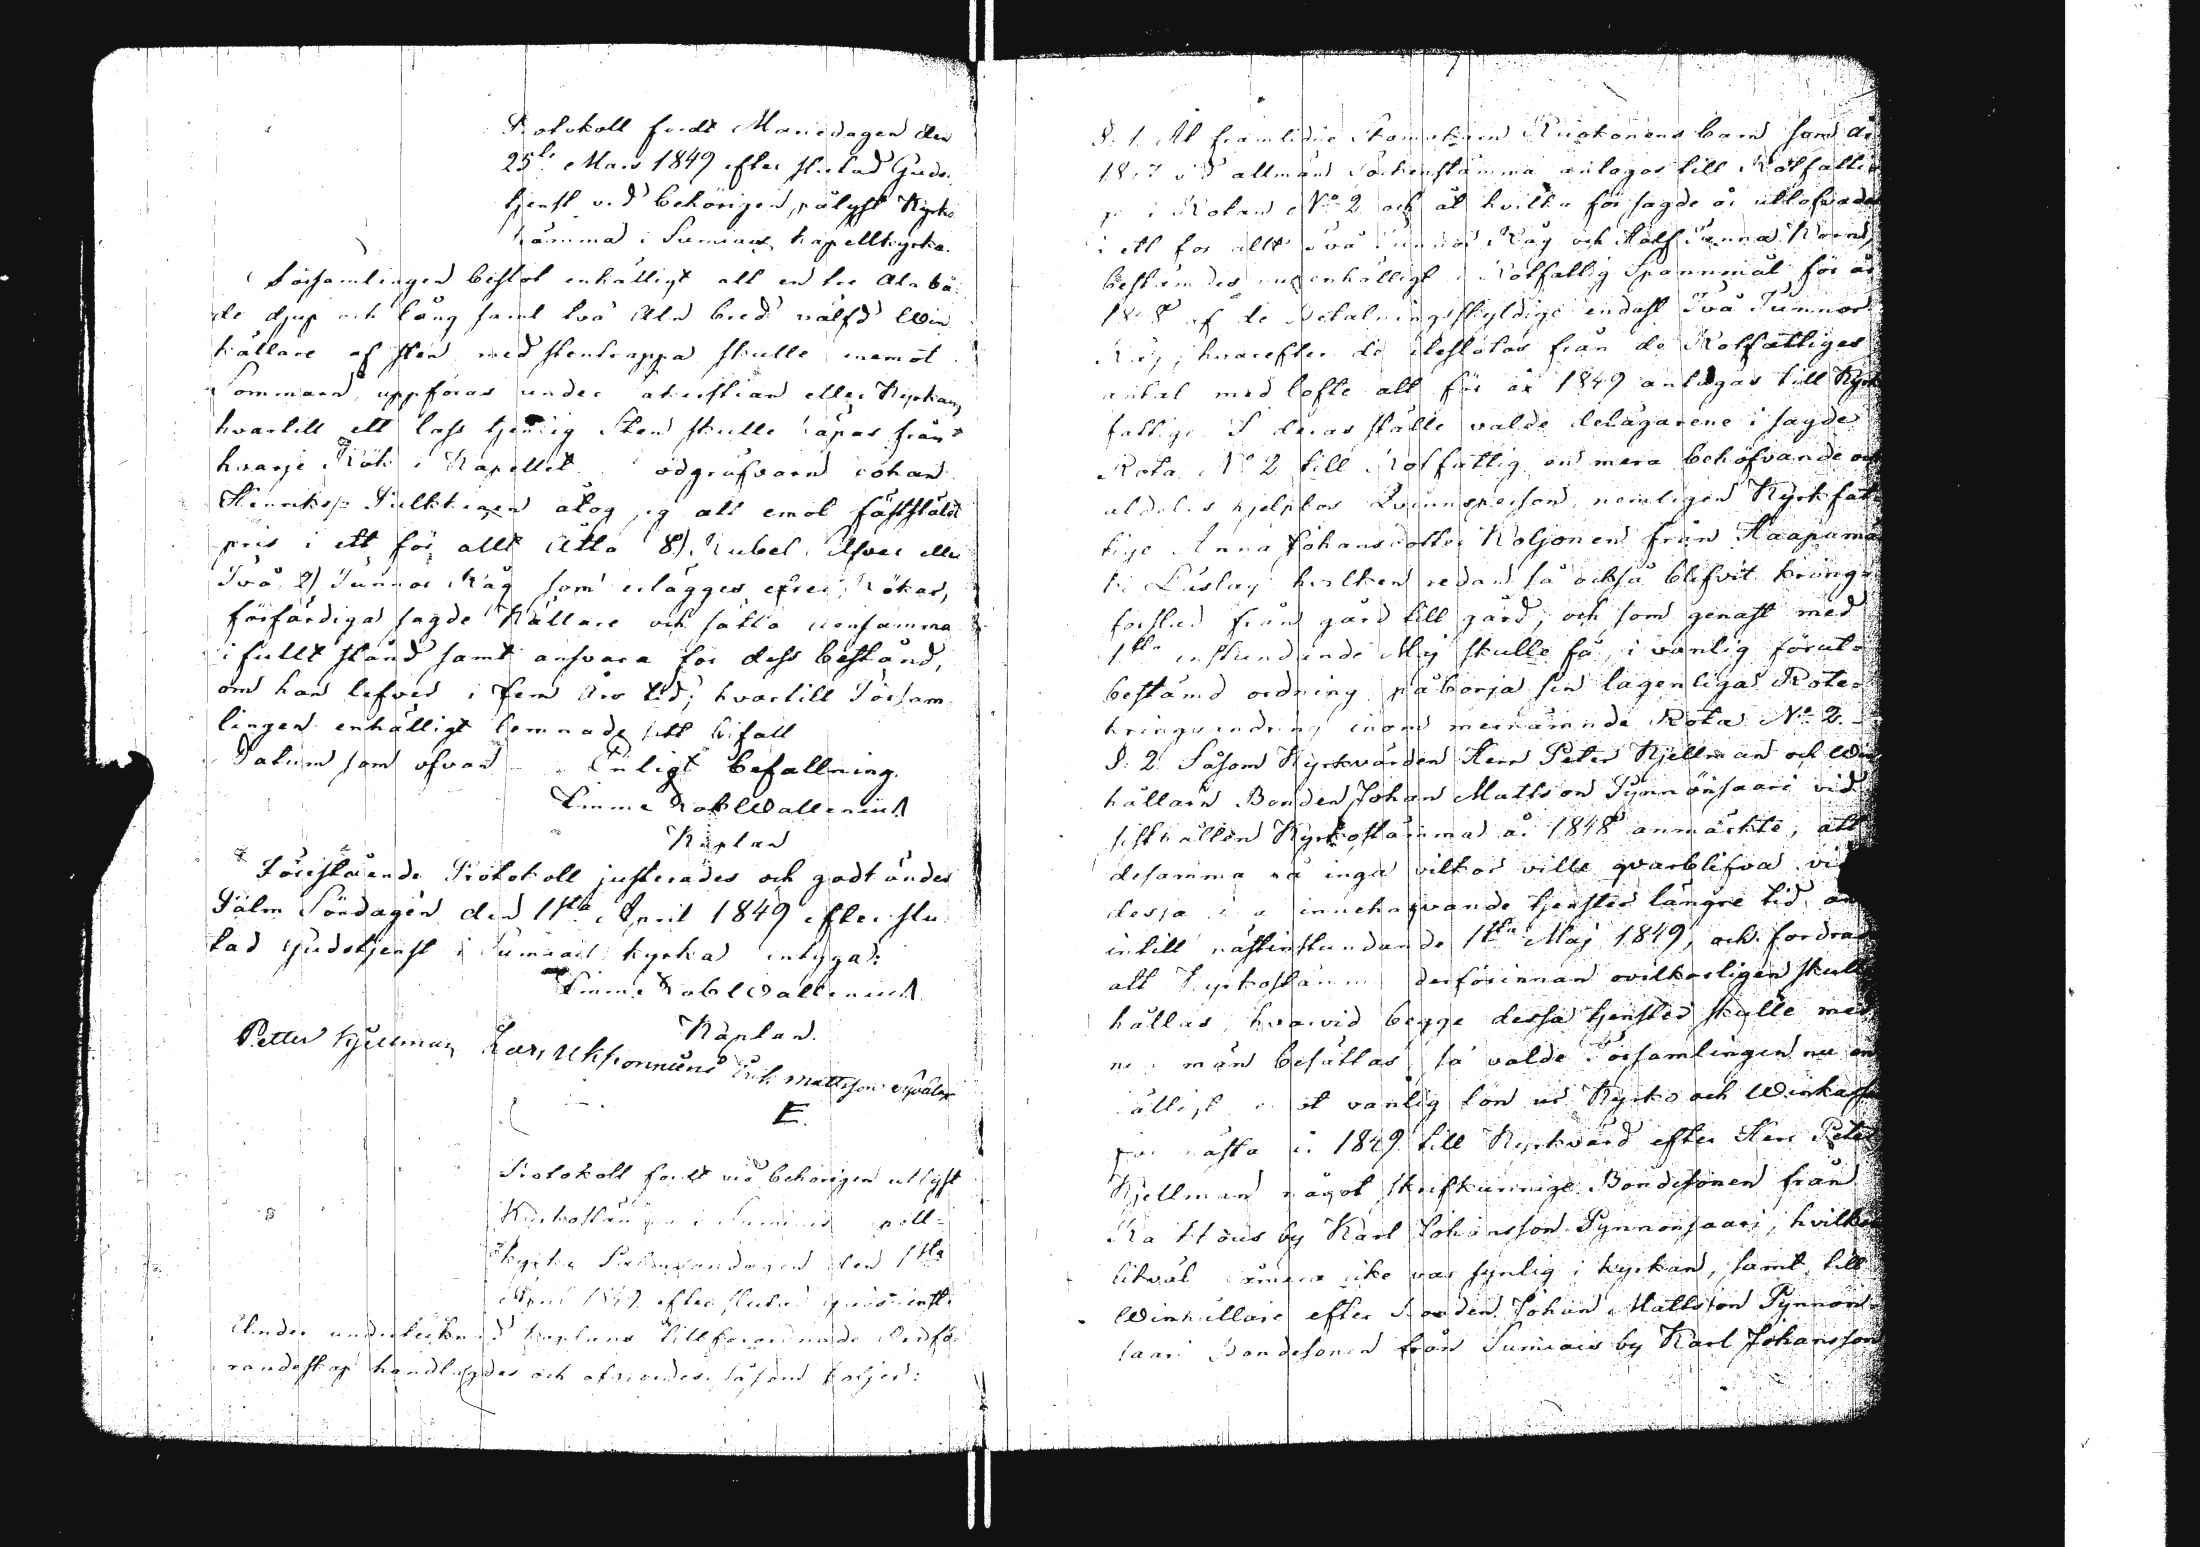 Protokoll fördt Mariedagen den
25te Mars 1849 efter slutad Guds-
tjenst vid behörigen pålyst Kyrko
stämma i Sumiais kapellkyrka.
Församlingen beslöt enhälligt att en tre Aln bå-
de djup och lång samt två Aln bred välfd Win
källare af sten med stentrappa skulle inemot
Sommaren uppföras under sakristian eller Kyrkan,
hvartill ett lass tjenlig Sten skulle släpas från
hvarje Rök i Kapellet. Jordgräfvaren Johan
Henriksson Pulkkinen åtog sig att emot fastställdt
pris i ett för allt Åtta 8) Rubel Silfver eller
Två 2) Tunnor Råg som erlägges efter Rökar,
förfärdiga sagde Källare och sätta densamma
i fullt stånd samt ansvara för dess bestånd,
om han lefver i fem års tid; hvartill Försam
lingen enhälligt lemnade sitt bifall
Datum som ofvan Enligt befallning.
Simme Rob Wallenius
Kaplan
Förestående Protokoll justerades och godkändes
Palm Söndagen den 1sta April 1849 efter slu
tad Gudstjenst i Sumiais kyrka intyga:
Simme Rob Wallenius
Kaplan.
Petter Kjellman Lars Ukkonen Erik Mattsson
E.
Protokoll fördt vid behörigen utlyst
Kyrkostämma i Sumiais kapell-
kyrka Palmsöndagen den 1sta
April 1849 efter slutad gudstjenst.
Under undertecknad Kaplans tillförordnade Ordfö
randeskap handlades och afgjordes såsom följer:
§. 1. Åt framlidne Skomakaren Ruokonens barn som år
1847 vid allmän Sockenstämma antogos till Rotfattige
i Rotan No 2 och åt hvilka för sagde år utlofvades
i ett för allt Två Tunnor Råg och Half Tunna Korn,
bestämdes nu enhälligt i Rotfattig Spannmål för år
1848 af de Betalningsskyldige endast Två Tunnor
Råg, hvarefter de uteslötos från de Rotfattiges
antal med löfte att för år 1849 antagas till Kyrk
fattige. I deras ställe valde delägarene i sagde
Rota No 2 till Rotfattig en mera behöfvande och
aldeles hjelplös Qvinnsperson, nemligen Kyrkfat-
tige Anna Johansdotter Koljonen från Haapamä
ki hvilken redan så också blifvit kring-
forslad från gård till gård, och som genast med
1sta instundande Maj skulle få, i vanlig förut-
bestämd ordning påbörja sin lagenliga Rote-
kringvandring inom mernämnde Rota No 2.
§. 2. Såsom Kyrkvärden Herr Peter Kjellman och Win
hållarn Bonden Johan Mattsson Pynnönsaari vid
sisthållen Kyrkostämma år 1848 anmärkte, att
desamma på inga vilkor ville qvarblifva vid
dessa sina innehafvande tjenster längre tid än
intill nästinstundande 1sta Maj 1849, och fordrade
att Kyrkostämma derförinnan ovilkorligen skulle
hållas, hvarvid begge dessa tjenster skulle med
nya män besättas, så valde Församlingen nu en
hälligt emot vanlig lön ur Kyrko och Winkassa
för nästa år 1849 till Kyrkvärd efter Herr Peter
Kjellman något skrifkunnige Bondesonen från
by Karl Johansson Pynnönsaari, hvilken
likväl numera icke var synlig i kyrkan, samt till
Winhållare efter Bonden Johan Mattsson Pynnön-
saari Bondesonen från Sumiais by Karl Johansson